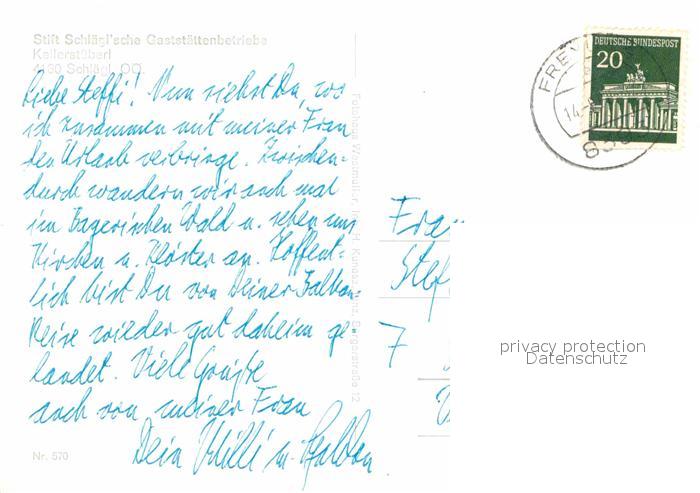 Stift Schlägl'sche Gaststättenbetriebe
Kellerstüberl
4160 Schlägl, OÖ.
Liebe Steffi! Nun siehst Du, wo
ich zusammen mit meiner Frau
den Urlaub verbringe. Zwischen-
durch wandern wir auch mal
im Bayerischen Wald u. sehen uns
Kirchen u. Klöster an. Hoffent-
lich bist Du von Deiner Balkan-
Reise wieder gut daheim ge-
landet. Viele Grüße
auch von meiner Frau
Dein Willi
Nr. 570
DEUTSCHE BUNDESPOST
20
FREY
14
Frau
Stef
7
privacy protection
Datenschutz